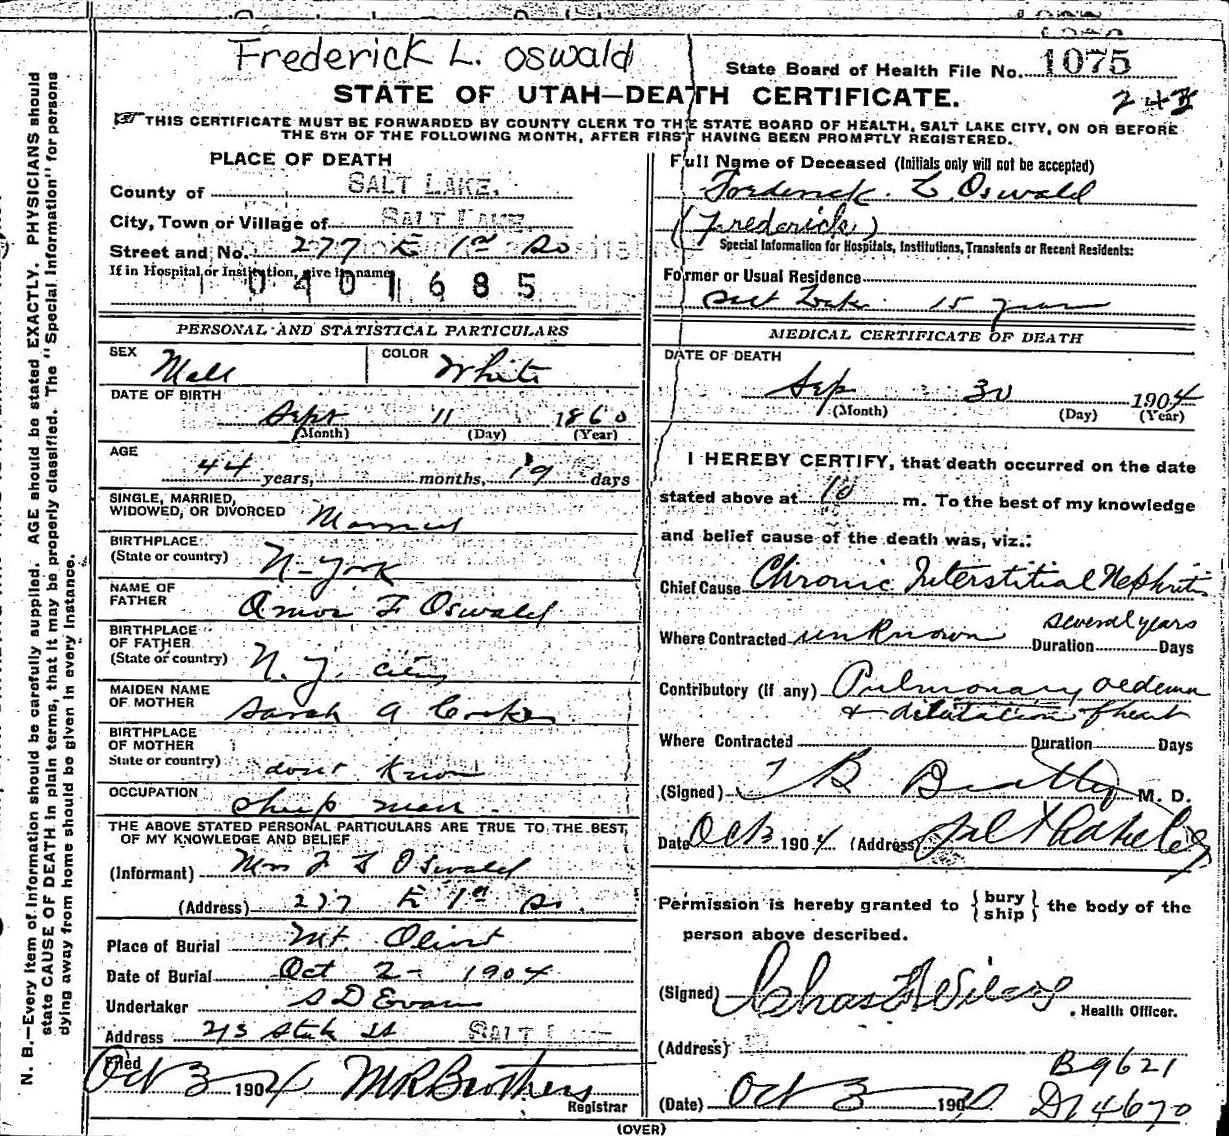 Frederick L. Oswald
State Board of Health File No. 1075
STATE OF UTAH—DEATH CERTIFICATE.
THIS CERTIFICATE MUST BE FORWARDED BY COUNTY CLERK TO THE STATE BOARD OF HEALTH, SALT LAKE CITY, ON OR BEFORE
THE 5TH OF THE FOLLOWING MONTH, AFTER FIRST HAVING BEEN PROMPTLY REGISTERED.
N. B.—Every item of information should be carefully supplied. AGE should be stated EXACTLY. PHYSICIANS should
state CAUSE OF DEATH in plain terms, that it may be properly classified. The "Special Information" for persons
dying away from home should be given in every instance.
PLACE OF DEATH
County of SALT LAKE.
City, Town or Village of SALT LAKE
Street and No. 277 E 1st So
If in Hospital or Institution, give its name
0401685
PERSONAL AND STATISTICAL PARTICULARS
SEX Male COLOR White
DATE OF BIRTH
Sept 11 1860
(Month) (Day) (Year)
AGE
44 years, months, 19 days
SINGLE, MARRIED,
WIDOWED, OR DIVORCED Married
BIRTHPLACE
(State or country) N-York
NAME OF
FATHER Amos F Oswald
BIRTHPLACE
OF FATHER
(State or country) N. Y. City
MAIDEN NAME
OF MOTHER Sarah A
BIRTHPLACE
OF MOTHER
State or country) dont Know
OCCUPATION sheep man.
THE ABOVE STATED PERSONAL PARTICULARS ARE TRUE TO THE BEST
OF MY KNOWLEDGE AND BELIEF
(Informant) Mrs F L Oswald
(Address) 277 E 1st So.
Place of Burial Mt. Olivet
Date of Burial Oct 2- 1904
Undertaker S D Evans
Address 213 State St SALT LAKE
Filed
Oct 3 1904 M R Brothers
Registrar
Full Name of Deceased (Initials only will not be accepted)
Frederick. L Oswald
(Frederick)
Special Information for Hospitals, Institutions, Transients or Recent Residents:
Former or Usual Residence
Salt Lake 15 years
MEDICAL CERTIFICATE OF DEATH
DATE OF DEATH
Sep 30 1904
(Month) (Day) (Year)
I HEREBY CERTIFY, that death occurred on the date
stated above at 10 m. To the best of my knowledge
and belief cause of the death was, viz.:
Chief Cause Chronic Interstitial Nephritis
several years
Where Contracted unknown Duration Days
Contributory (if any) Pulmonary oedema
& dilatation of heart
Where Contracted Duration Days
(Signed) T B Beatty M. D.
Date Oct 3 1904 (Address) Salt Lake City
Permission is hereby granted to {bury ship} the body of the
person above described.
(Signed) Chas Wilcox
, Health Officer.
(Address)
B9621
(Date) Oct 3 190
D14670
(OVER)